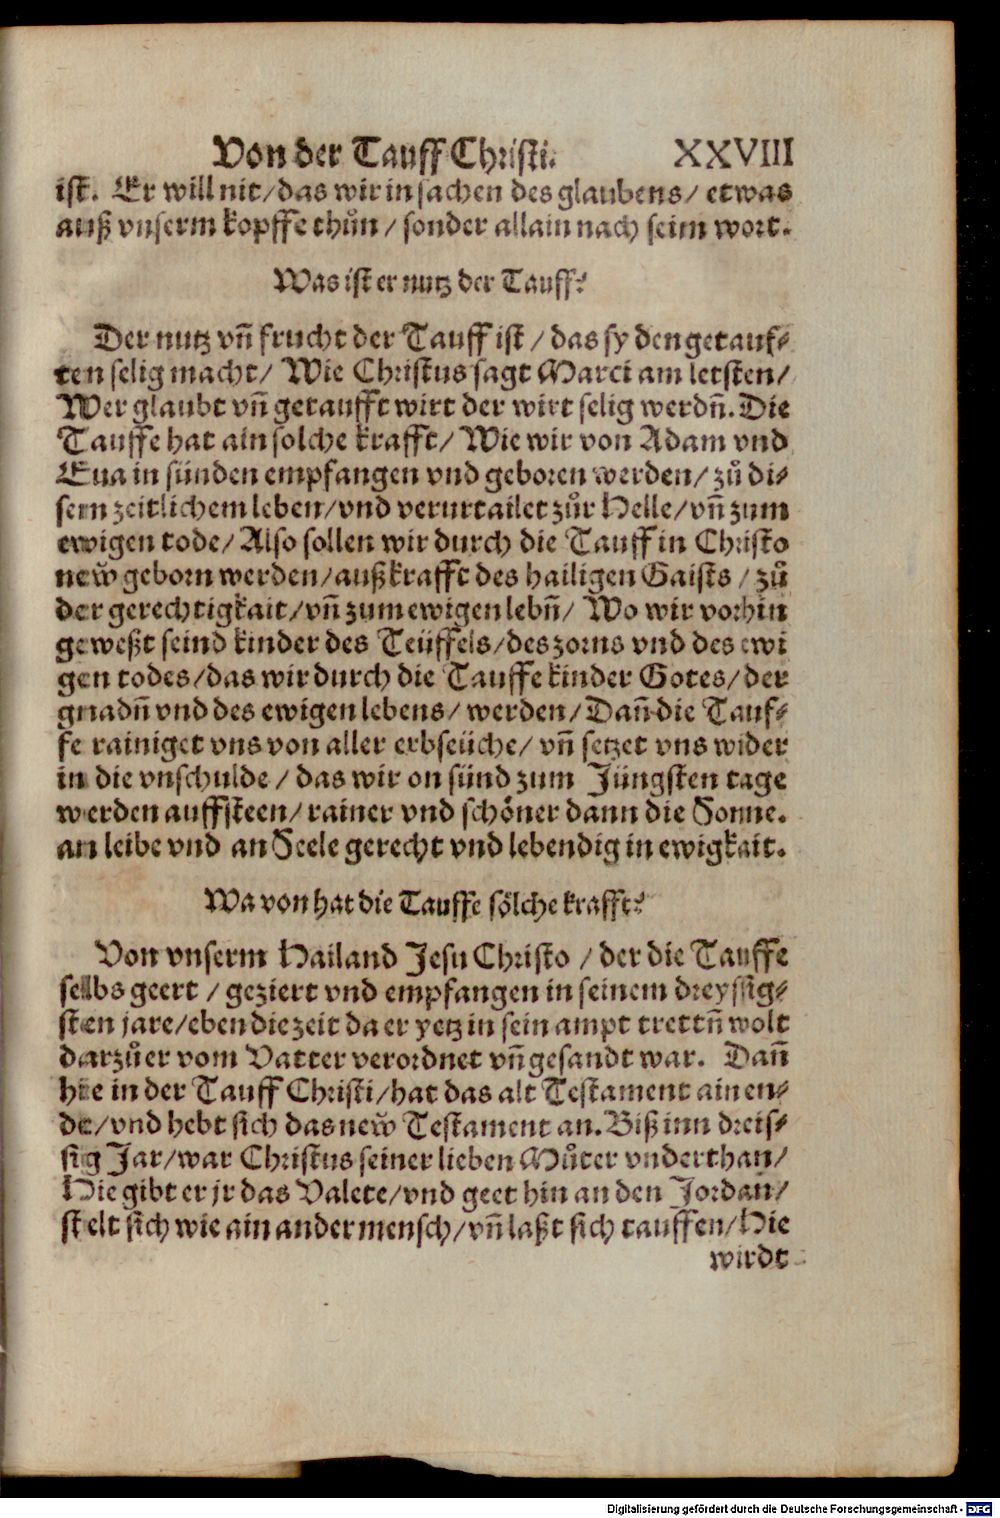 Von der Tauff Christi. XXVIII
ist. Er will nit/das wir in sachen des glaubens/ etwas
auß vnserm kopffe thůn/ sonder allain nach seim wort.
Was ist er nutz der Tauff?
Der nutz vñ frucht der Tauff ist/ das sy den getauf-
ten selig macht/ Wie Christus sagt Marci am letsten/
Wer glaubt vñ getaufft wirt der wirt selig werdñ. Die
Tauffe hat ain solche krafft/ Wie wir von Adam vnd
Eua in sünden empfangen vnd geboren werden/ zů di-
sem zeitlichem leben/vnd verurtailet zůr Helle/vñ zum
ewigen tode/ Also sollen wir durch die Tauff in Christo
new̌ geborn werden/auß krafft des hailigen Gaists/ zů
der gerechtigkait/vñ zum ewigen lebñ/ Wo wir vorhin
geweßt seind kinder des Teüffels/des zorns vnd des ewi
gen todes/das wir durch die Tauffe kinder Gotes/der
gnadñ vnd des ewigen lebens/ werden/Dañ die Tauf-
fe rainiget vns von aller erbseüche/ vñ setzet vns wider
in die vnschulde/ das wir on sünd zum Jüngsten tage
werden auffsteen/ rainer vnd schöner dann die Sonne.
an leibe vnd an Seele gerecht vnd lebendig in ewigkait.
Wa von hat die Tauffe sölche krafft?
Von vnserm Hailand Jesu Christo/ der die Tauffe
selbs geert/ geziert vnd empfangen in seinem dreyssig-
sten jare/eben die zeit da er yetz in sein ampt trettñ wolt
darzů er vom Vatter verordnet vñ gesandt war. Dañ
hie in der Tauff Christi/hat das alt Testament ain en-
de/vnd hebt sich das new̌ Testament an. Biß inn dreis-
sig Jar/war Christus seiner lieben Můter vnderthan/
Hie gibt er jr das Valete/vnd geet hin an den Jordan/
stelt sich wie ain ander mensch/vñ laßt sich tauffen/Hie
wirdt
Digitalisierung gefördert durch die Deutsche Forschungsgemeinschaft - DFG